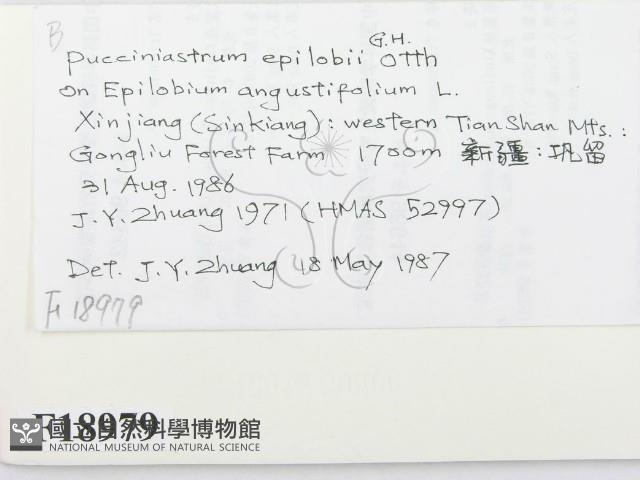 B
Pucciniastrum epilobii G.H. Otth
on Epilobium angustifolium L.
Xinjiang (Sinkiang): western Tian Shan Mts.:
Gongliu Forest Farm 1700m 新疆:巩留
31 Aug. 1986
J.Y. Zhuang 1971 (HMAS 52997)
Det. J.Y. Zhuang 18 May 1987
F18979
F18979
國立自然科學博物館
NATIONAL MUSEUM OF NATURAL SCIENCE